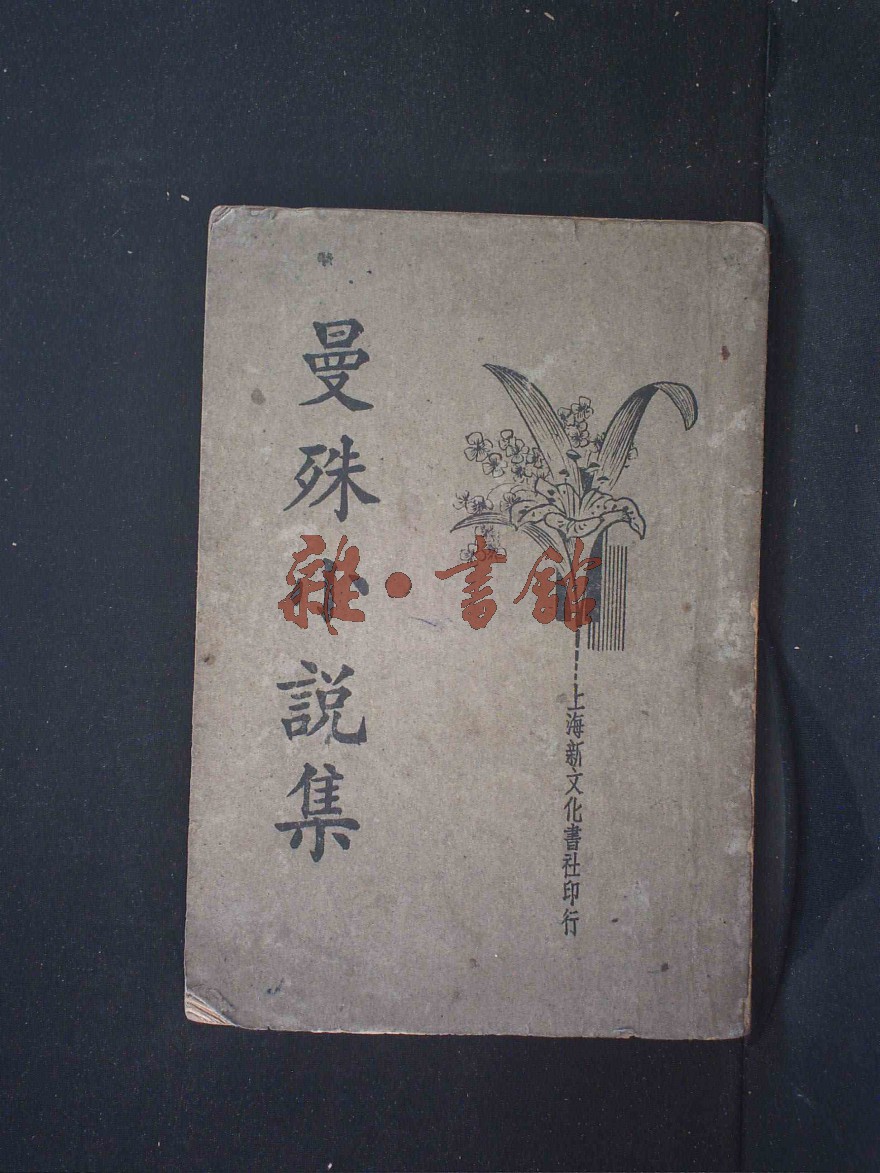 曼殊小說集
上海新文化書社印行
雜·書館